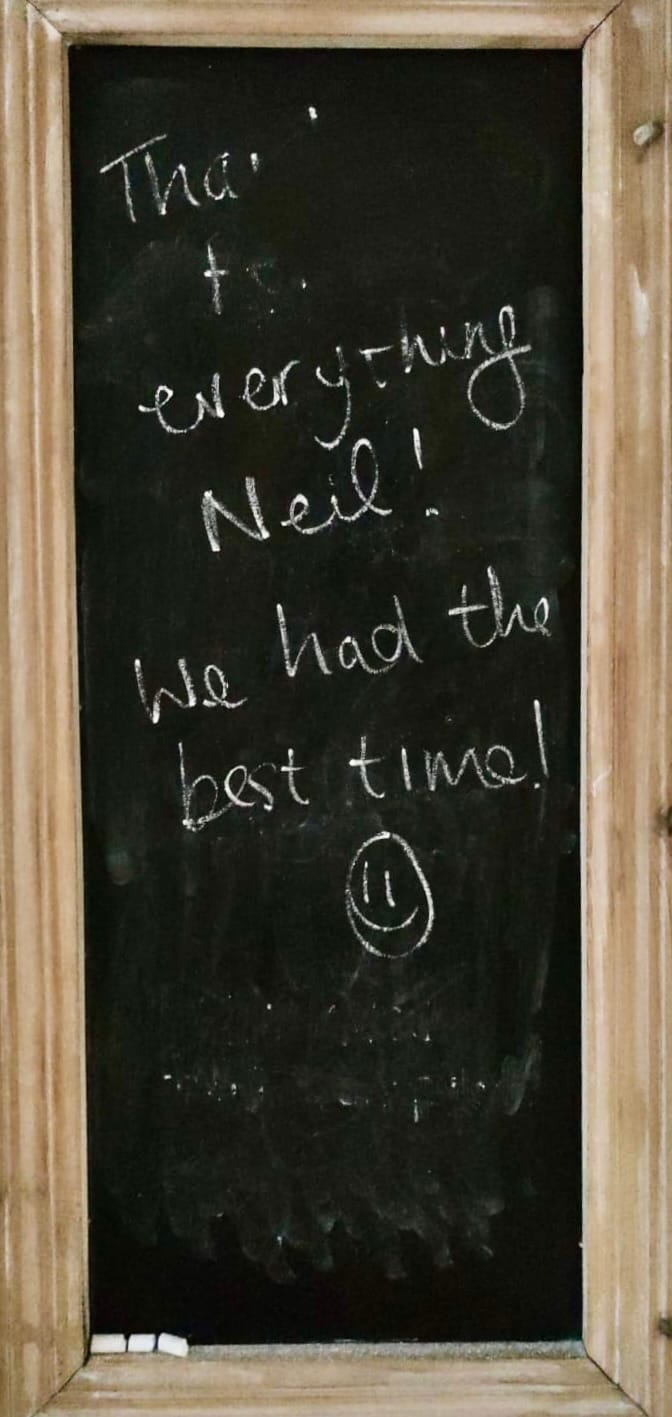 everything
Neil!
We had the
best time!